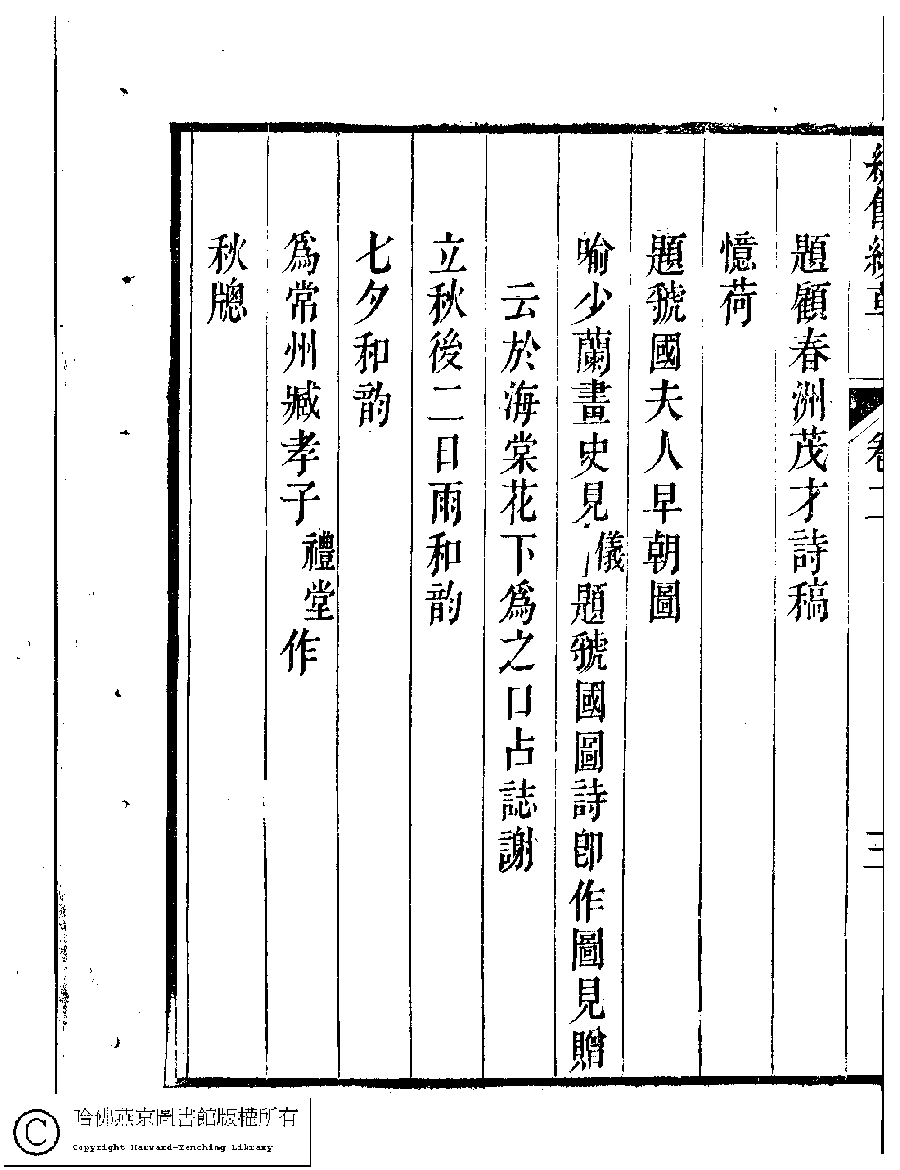 卷二
三
題顧春洲茂才詩稿
憶荷
題虢國夫人早朝圖
喻少蘭畫史見儀題虢國圖詩卽作圖見贈
云於海棠花下爲之口占誌謝
立秋後二日雨和韵
七夕和韵
爲常州臧孝子禮堂作
秋牕
哈佛燕京圖書館版權所有
Copyright Harvard-Yenching Library